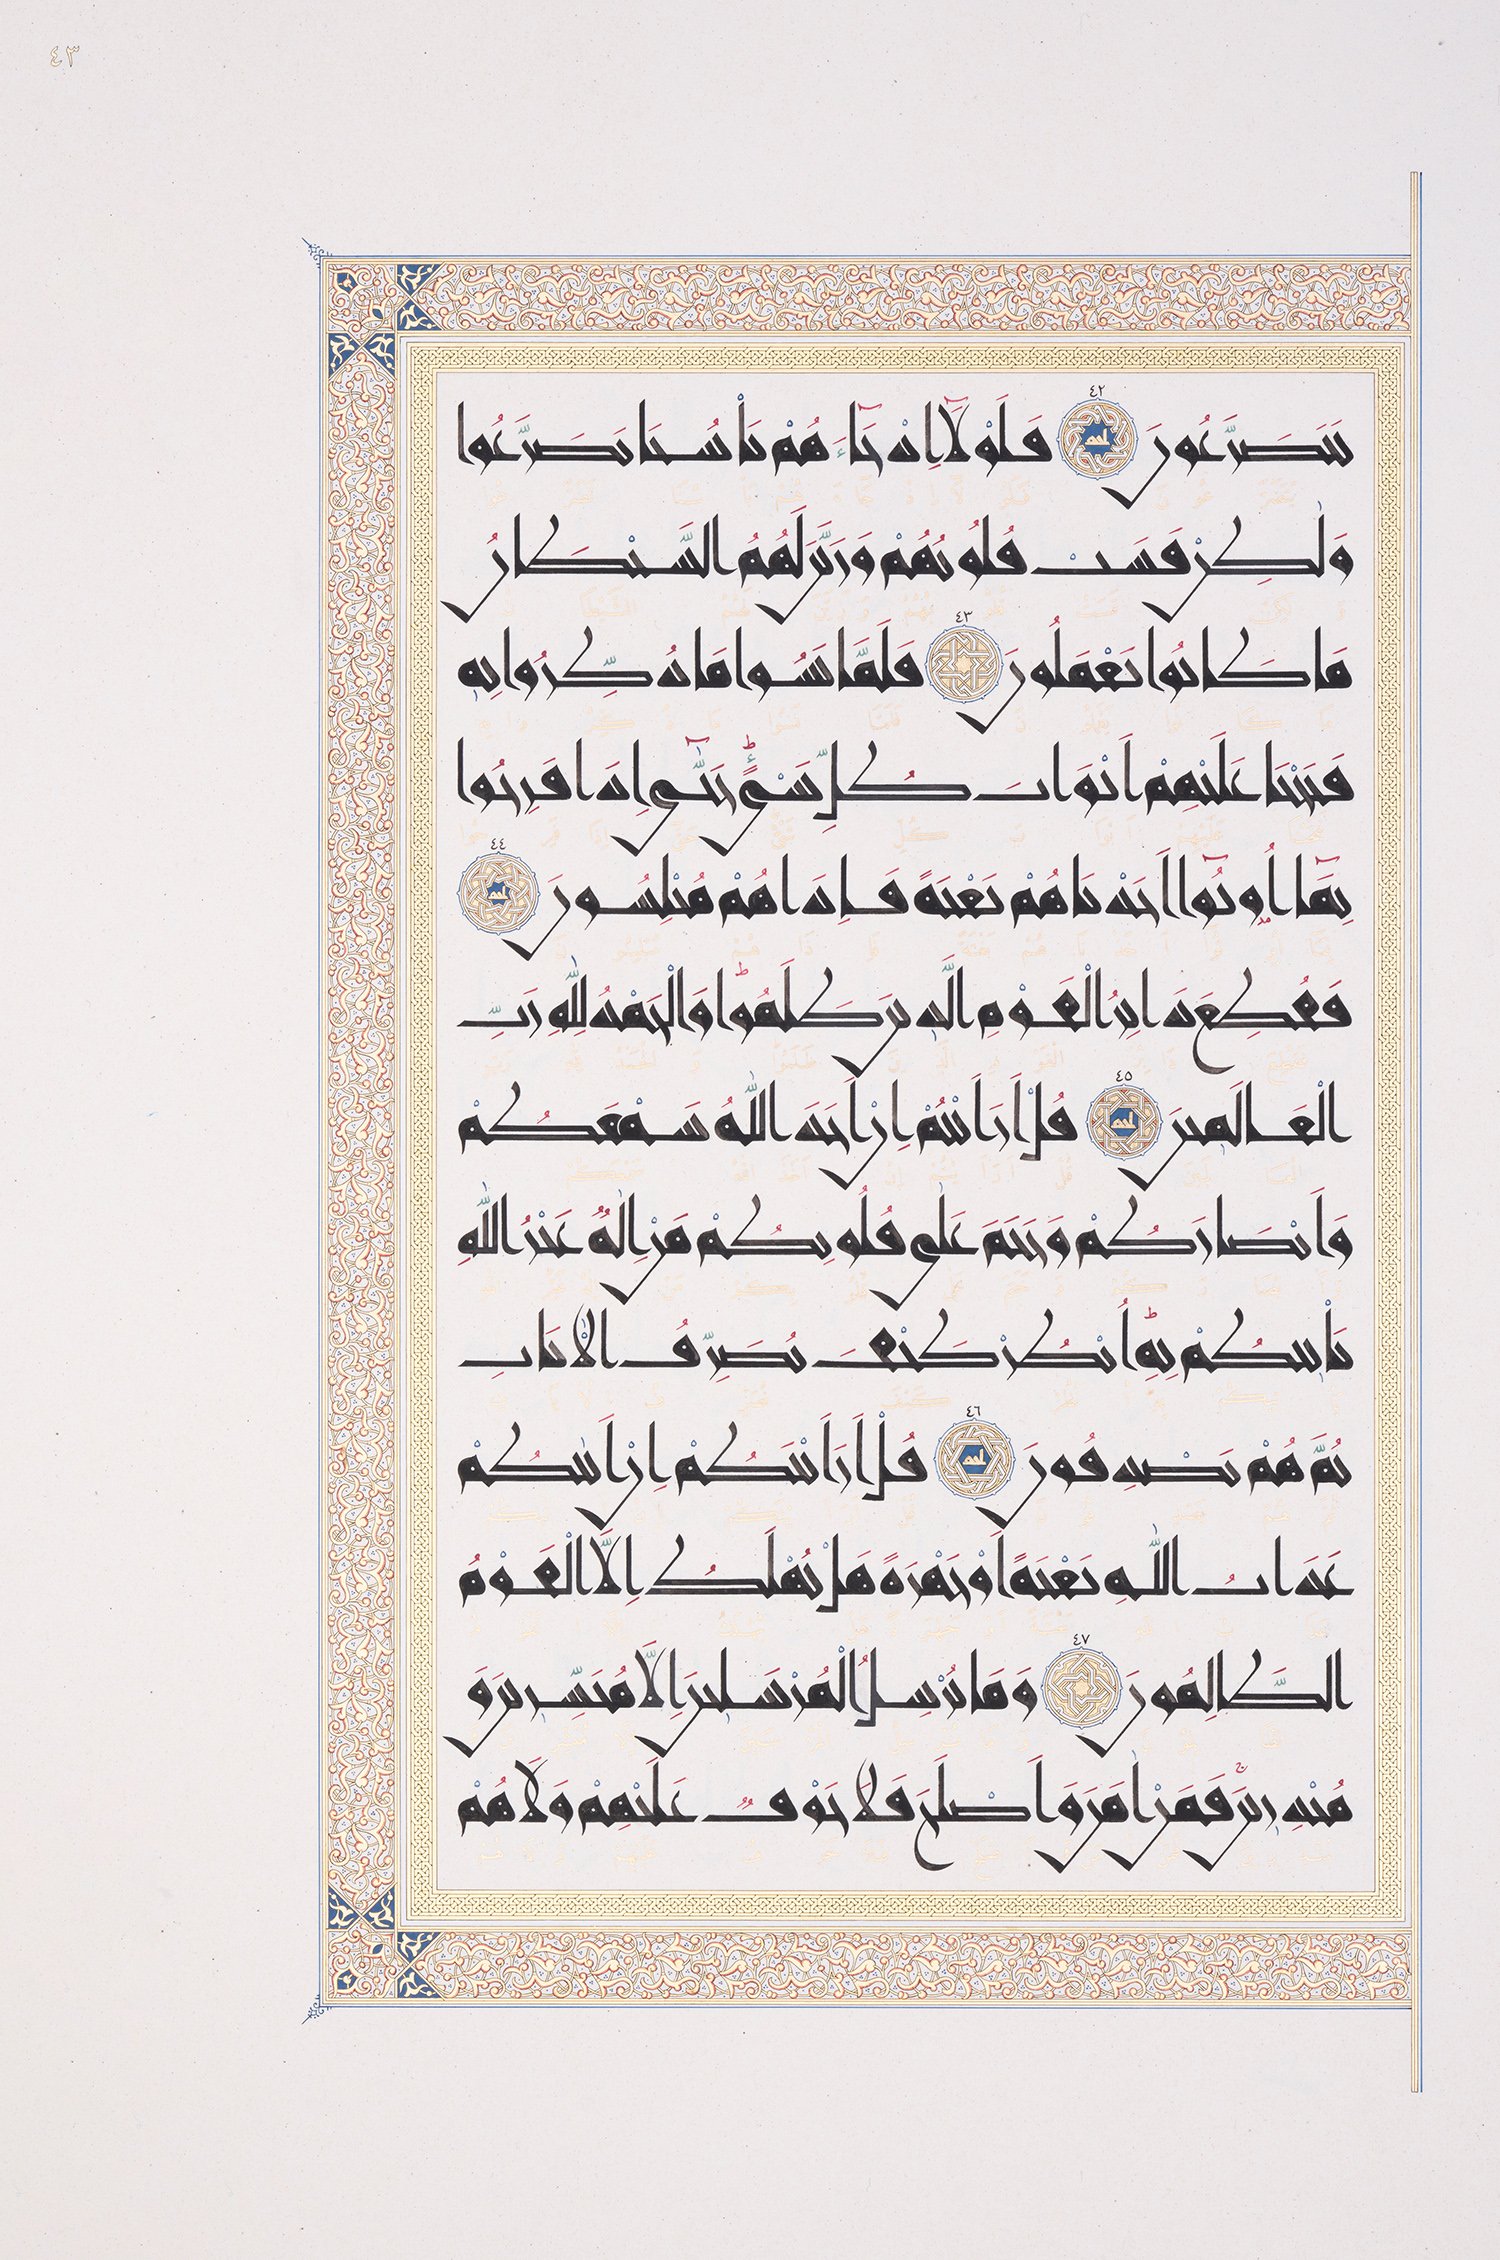 ٤٣
يَتَضَرَّعُونَ ٤٢ فَلَوْلَآ إِذْ جَآءَهُمْ بَأْسُنَا تَضَرَّعُوا
وَلٰكِنْ قَسَتْ قُلُوبُهُمْ وَزَيَّنَ لَهُمُ الشَّيْطَانُ
مَا كَانُوا يَعْمَلُونَ ٤٣ فَلَمَّا نَسُوا مَا ذُكِّرُوا بِهِ
فَتَحْنَا عَلَيْهِمْ أَبْوَابَ كُلِّ شَيْءٍ ط حَتّٰىٓ إِذَا فَرِحُوا
بِمَآ أُوتُوٓا أَخَذْنَاهُمْ بَغْتَةً فَإِذَا هُمْ مُبْلِسُونَ ٤٤
فَقُطِعَ دَابِرُ الْقَوْمِ الَّذِينَ ظَلَمُوا ط وَالْحَمْدُ لِلّٰهِ رَبِّ
الْعَالَمِينَ ٤٥ قُلْ أَرَأَيْتُمْ إِنْ أَخَذَ اللّٰهُ سَمْعَكُمْ
وَأَبْصَارَكُمْ وَخَتَمَ عَلٰى قُلُوبِكُمْ مَنْ إِلٰهٌ غَيْرُ اللّٰهِ
يَأْتِيكُمْ بِهِ ط اُنْظُرْ كَيْفَ نُصَرِّفُ الْاٰيَاتِ
ثُمَّ هُمْ يَصْدِفُونَ ٤٦ قُلْ أَرَأَيْتَكُمْ إِنْ أَتٰيكُمْ
عَذَابُ اللّٰهِ بَغْتَةً أَوْ جَهْرَةً هَلْ يُهْلَكُ إِلَّا الْقَوْمُ
الظَّالِمُونَ ٤٧ وَمَا نُرْسِلُ الْمُرْسَلِينَ إِلَّا مُبَشِّرِينَ وَ
مُنْذِرِينَ ج فَمَنْ اٰمَنَ وَأَصْلَحَ فَلَا خَوْفٌ عَلَيْهِمْ وَلَا هُمْ